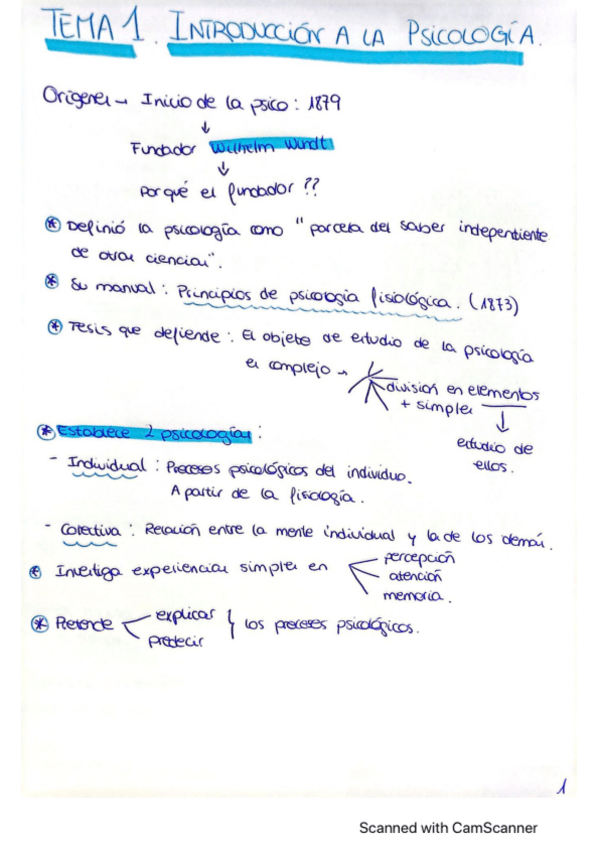 TEMA 1. INTRODUCCIÓN A LA PSICOLOGÍA.
Orígenes → Inicio de la psico: 1879
↓
Fundador Wilhelm Wundt
↓
Por qué el fundador ??
* Definió la psicología como "parcela del saber indepentiente
de otras ciencias".
* Su manual: Principios de psicología fisiológica. (1873)
* Tesis que defiende: El objeto de estudio de la psicología
es complejo → división en elementos
+ simples
↓
estudio de
ellos.
* Establece 2 psicologías:
- Individual: Procesos psicológicos del individuo.
A partir de la fisiología.
- Colectiva: Relación entre la mente individual y la de los demás.
* Investiga experiencias simples en percepción
atención
memoria.
* Pretende explicar
predecir } los procesos psicológicos.
1
Scanned with CamScanner